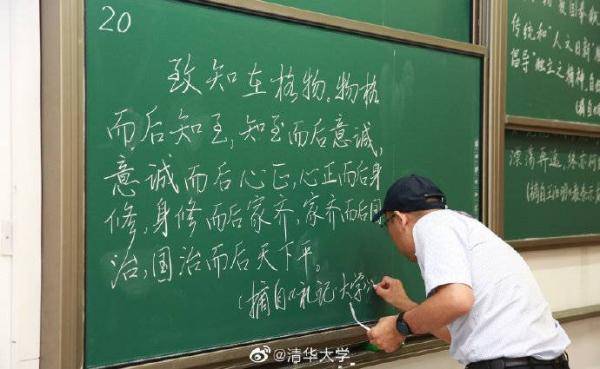 20
致知在格物。物格
而后知至，知至而后意诚，
意诚而后心正，心正而后身
修，身修而后家齐，家齐而后国
治，国治而后天下平。
（摘自《礼记·大学》
传统和“人文日新”
倡导“独立之精神，自
深漓再造，
@清华大学